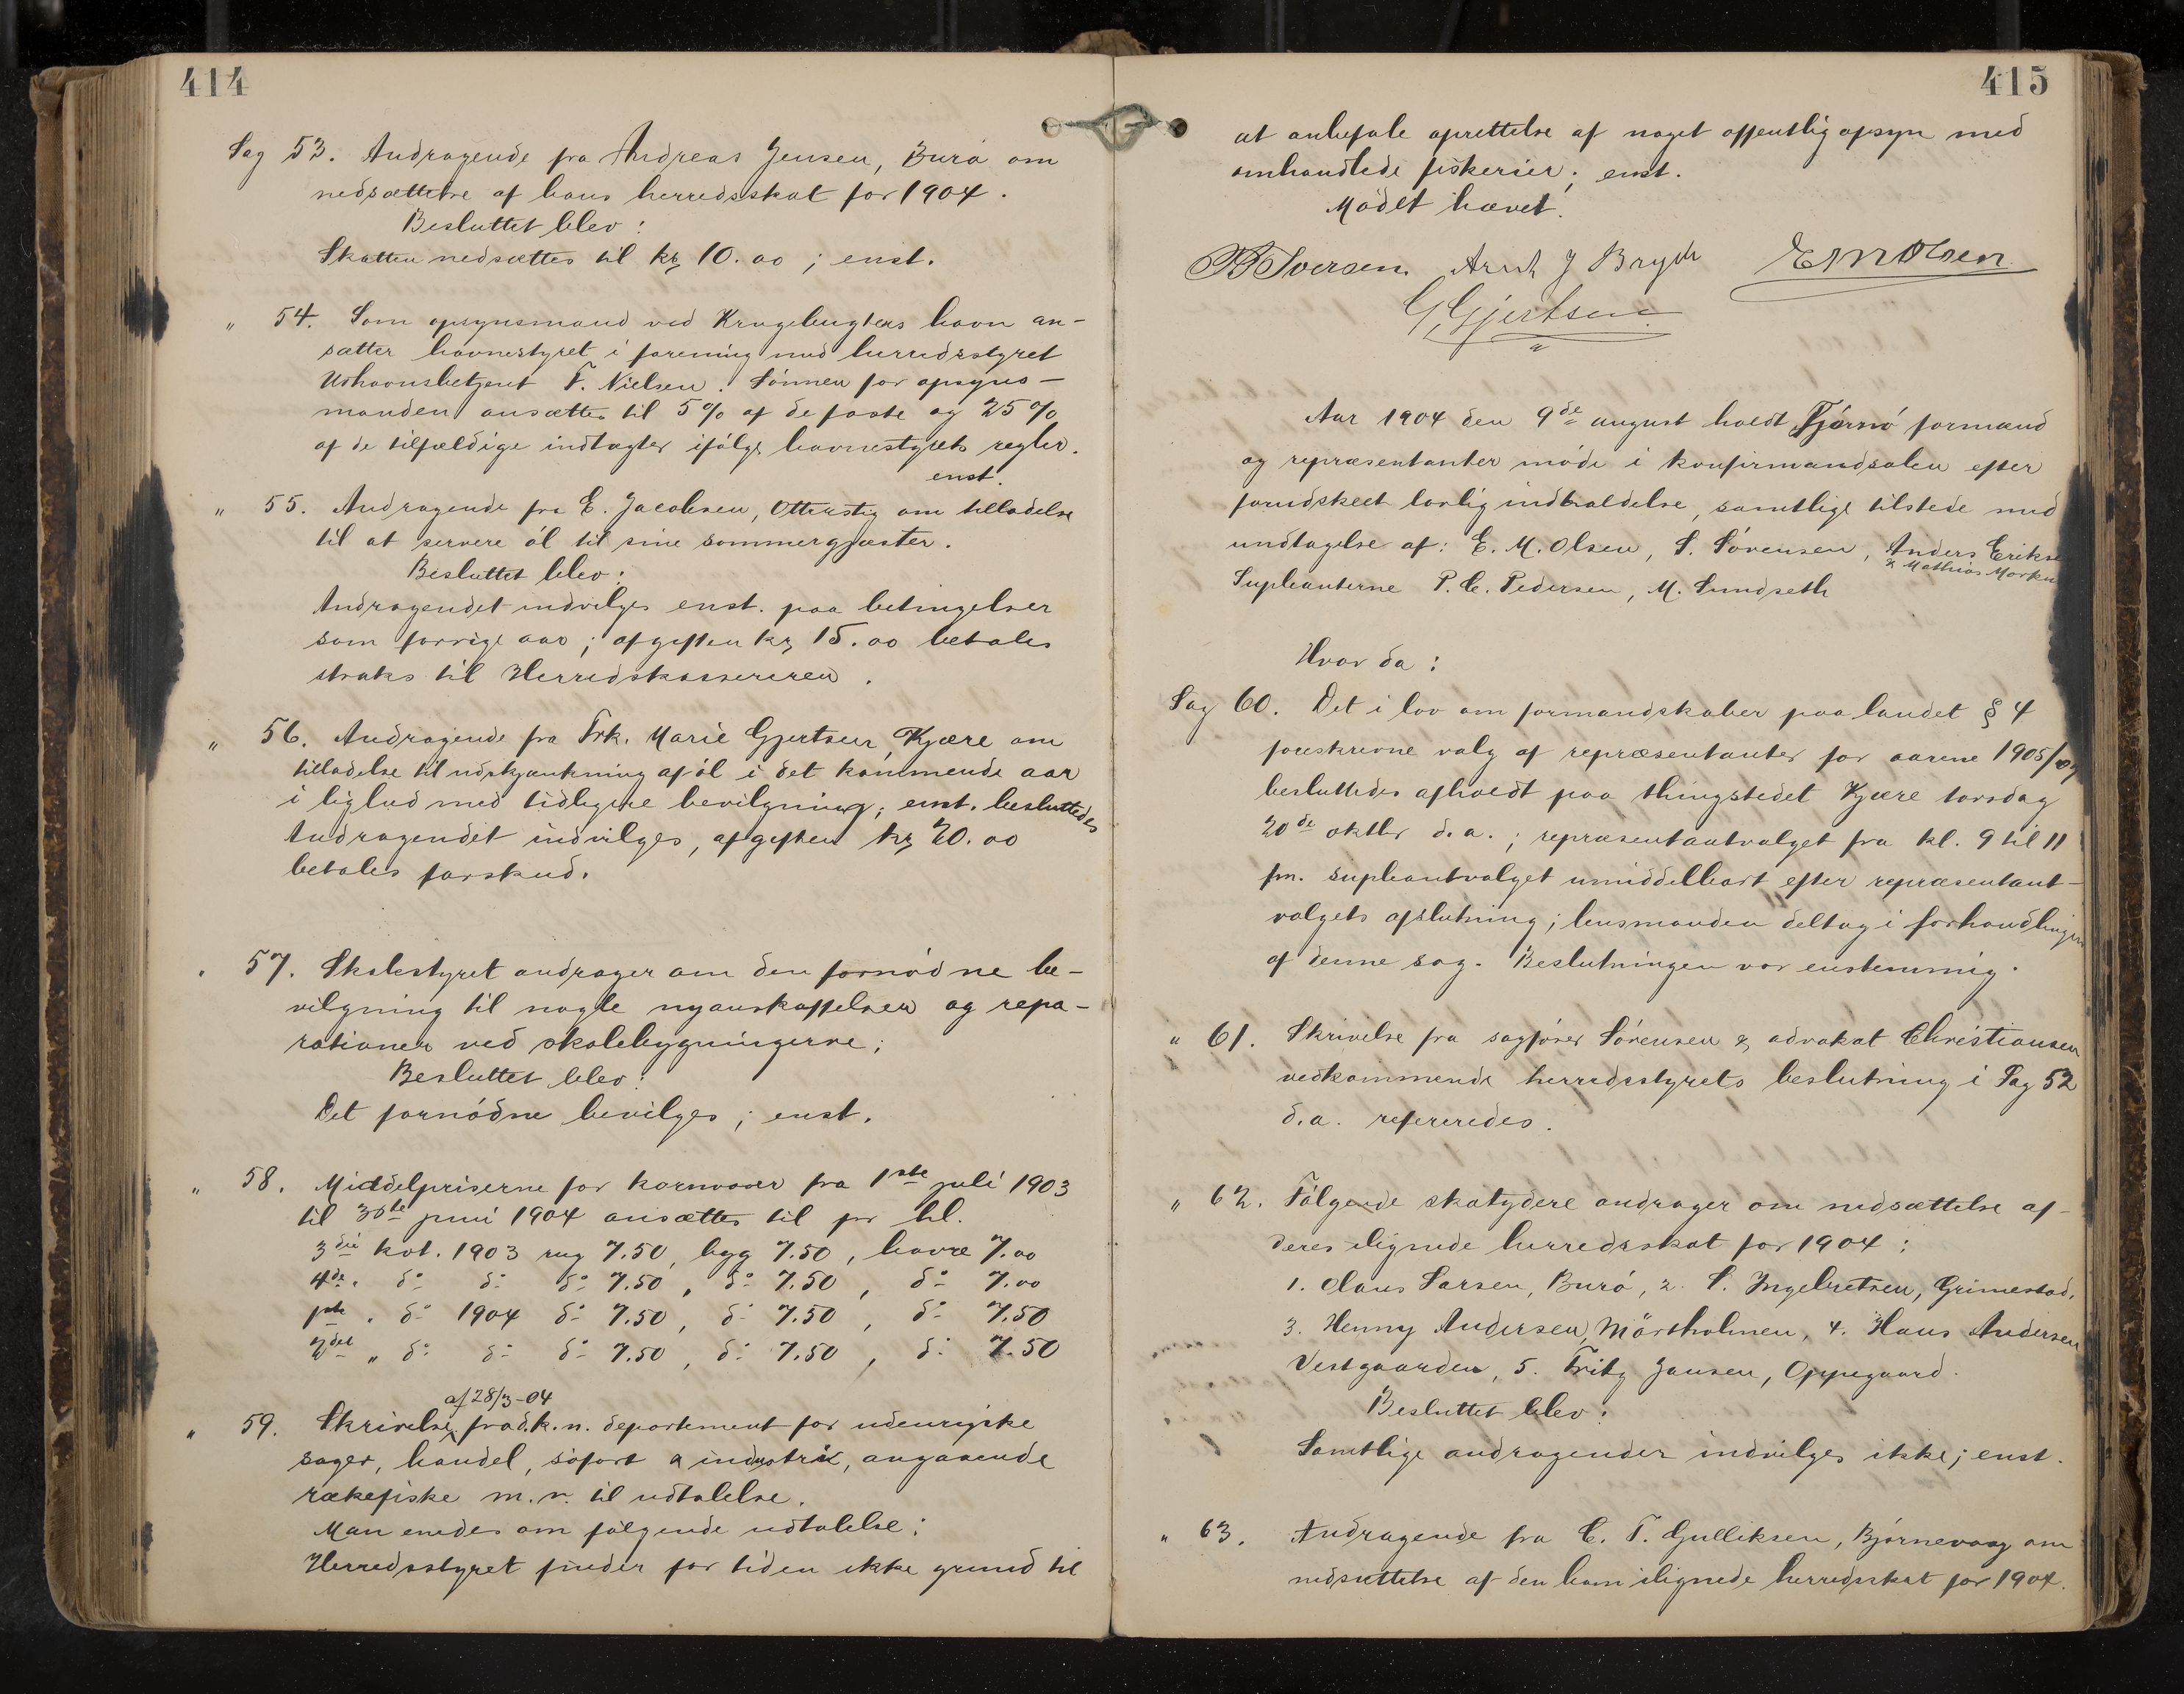 414
Sag 53. Andragende fra Andreas Jensen, Burø om
nedsættelse af hans herredsskat for 1904.
Besluttet blev:
Skatten nedsættes til kr 10.00; enst.
" 54. Som opsynsmand ved Krugebugtens havn an-
sætter havnestyret i forening med herredsstyret
Udhavnsbetjent F. Nielsen. Lønnen for opsyns-
manden ansættes til 5% af de faste og 25%
af de tilfældige indtægter ifølge havnestyrets regler.
enst.
" 55. Andragende fra E. Jacobsen, Ottersstig om tilladelse
til at servere øl til sine sommergjæster.
Besluttet blev:
Andragendet indvilges enst. paa betingelser
som forrige aar; afgiften kr 15.00 betales
straks til Herredskassereren.
" 56. Andragende fra Frk. Marie Gjertsen, Kjære om
tilladelse til udskjænkning af øl i det kommende aar
i liglud med tidligere bevilgning; enst. besluttedes
Andragendet indvilges, afgiften kr 20.00
betales forskud.
" 57. Skolestyret andrager om den fornødne be-
vilgning til nogle nyanskaffelser og repa-
rationer ved skolebygningerne;
Besluttet blev:
Det fornødne bevilges; enst.
" 58. Middelpriserne for kornvarer fra 1ste juli 1903
til 30te juni 1904 ansættes til pr hl.
3die kvt. 1903 rug 7.50, byg 7.50, havre 7.00
4de " do do do 7.50, do 7.50, do 7.00
1ste " do 1904 do 7.50, do 7.50, do 7.50
2det " do do do 7.50, do 7.50, do 7.50
af 28/3-04
" 59. Skrivelse fra d.k.n. departement for udenrigske
sager, handel, søfart & industri, angaaende
rækefiske m.v. til udtalelse.
Man enedes om følgende udtalelse:
Herredsstyret finder for tiden ikke grund til
415
at anbefale oprettelse af noget offentlig opsyn med
omhandlede fiskerier; enst.
Mødet hævet.
B Iversen. Arnt J Bryde E M Olsen
G. Gjertsen
Aar 1904 den 9de august holdt Tjømø formænd
og repræsentanter møde i konfirmandsalen efter
forudskeet lovlig indkaldelse, samtlige tilstede med
undtagelse af: E. M. Olsen, S. Sørensen, Anders Erikse
& Mathias Morken
Supleanterne P. C. Pedersen, M. Sundseth
Hvor da:
Sag 60. Det i lov om formandskaber paa landet § 4
foreskrevne valg af repræsentanter for aarene 1905/07
besluttedes afholdt paa thingstedet Kjære torsdag
20de oktbr d.a.; repræsentantvalget fra kl. 9 til 11
fm. supleantvalget umiddelbart efter repræsentant-
valgets afslutning; lensmanden deltog i forhandlingen
af denne sag. Beslutningen var enstemmig.
" 61. Skrivelse fra sagfører Sørensen & advokat Christiansen
vedkommende herredsstyrets beslutning i Sag 52
d.a. refereredes.
" 62. Følgende skatydere andrager om nedsættelse af
deres ilignede herredsskat for 1904:
1. Claus Larsen, Burø, 2. S. Ingebretsen, Grimestad,
3. Henny Andersen, Mörtholmen, 4. Hans Andersen
Vestgaarden, 5. Fritz Jansen, Oppegaard.
Besluttet blev:
Samtlige andragender indvilges ikke; enst.
" 63. Andragende fra C. F. Gulliksen, Bjørnevaag om
nedsættelse af den ham ilignede herredsskat for 1904.